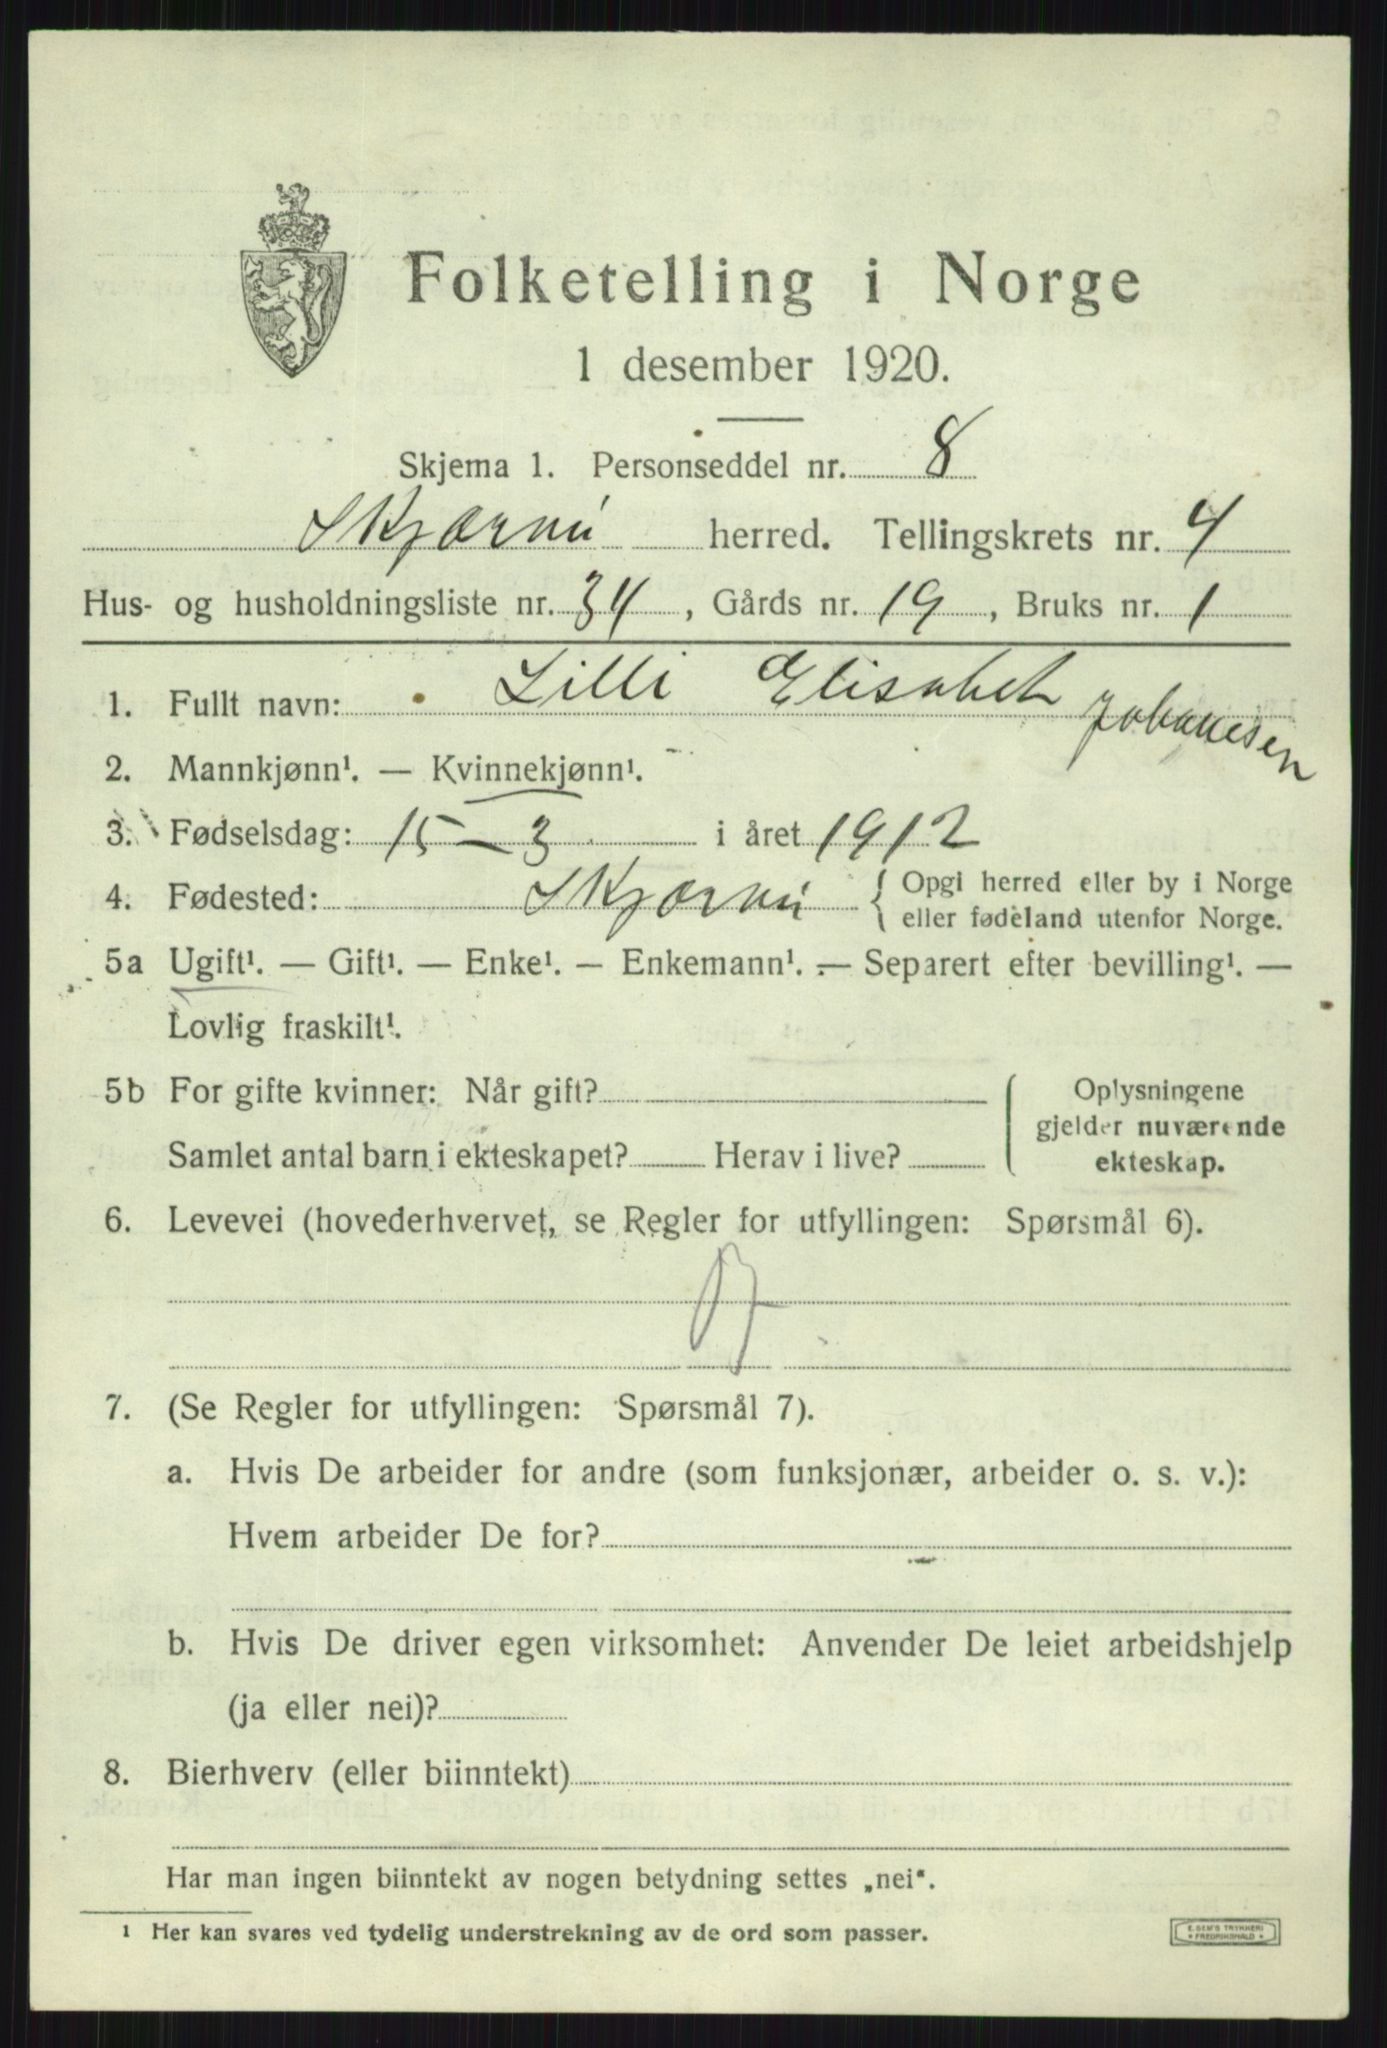 Folketelling i Norge
1 desember 1920.
Skjema 1. Personseddel nr. 8
Skjærvø herred. Tellingskrets nr. 4
Hus- og husholdningsliste nr. 34, Gårds nr. 19, Bruks nr. 1
1. Fullt navn: Lilli Elisabet Johanesen
2. Mannkjønn¹. — Kvinnekjønn¹.
3. Fødselsdag: 15 – 3 i året 1912
4. Fødested: Skjærvø { Opgi herred eller by i Norge
eller fødeland utenfor Norge.
5a Ugift¹. — Gift¹. — Enke¹. — Enkemann¹. — Separert efter bevilling¹. —
Lovlig fraskilt¹.
5b For gifte kvinner: Når gift? { Oplysningene
gjelder nuværende
Samlet antal barn i ekteskapet? Herav i live? ekteskap.
6. Levevei (hovederhvervet, se Regler for utfyllingen: Spørsmål 6).
7. (Se Regler for utfyllingen: Spørsmål 7).
a. Hvis De arbeider for andre (som funksjonær, arbeider o. s. v.):
Hvem arbeider De for?
b. Hvis De driver egen virksomhet: Anvender De leiet arbeidshjelp
(ja eller nei)?
8. Bierhverv (eller biinntekt)
Har man ingen biinntekt av nogen betydning settes „nei“.
¹ Her kan svares ved tydelig understrekning av de ord som passer.
E. SEM'S TRYKKERI
• FREDRIKSHALD •